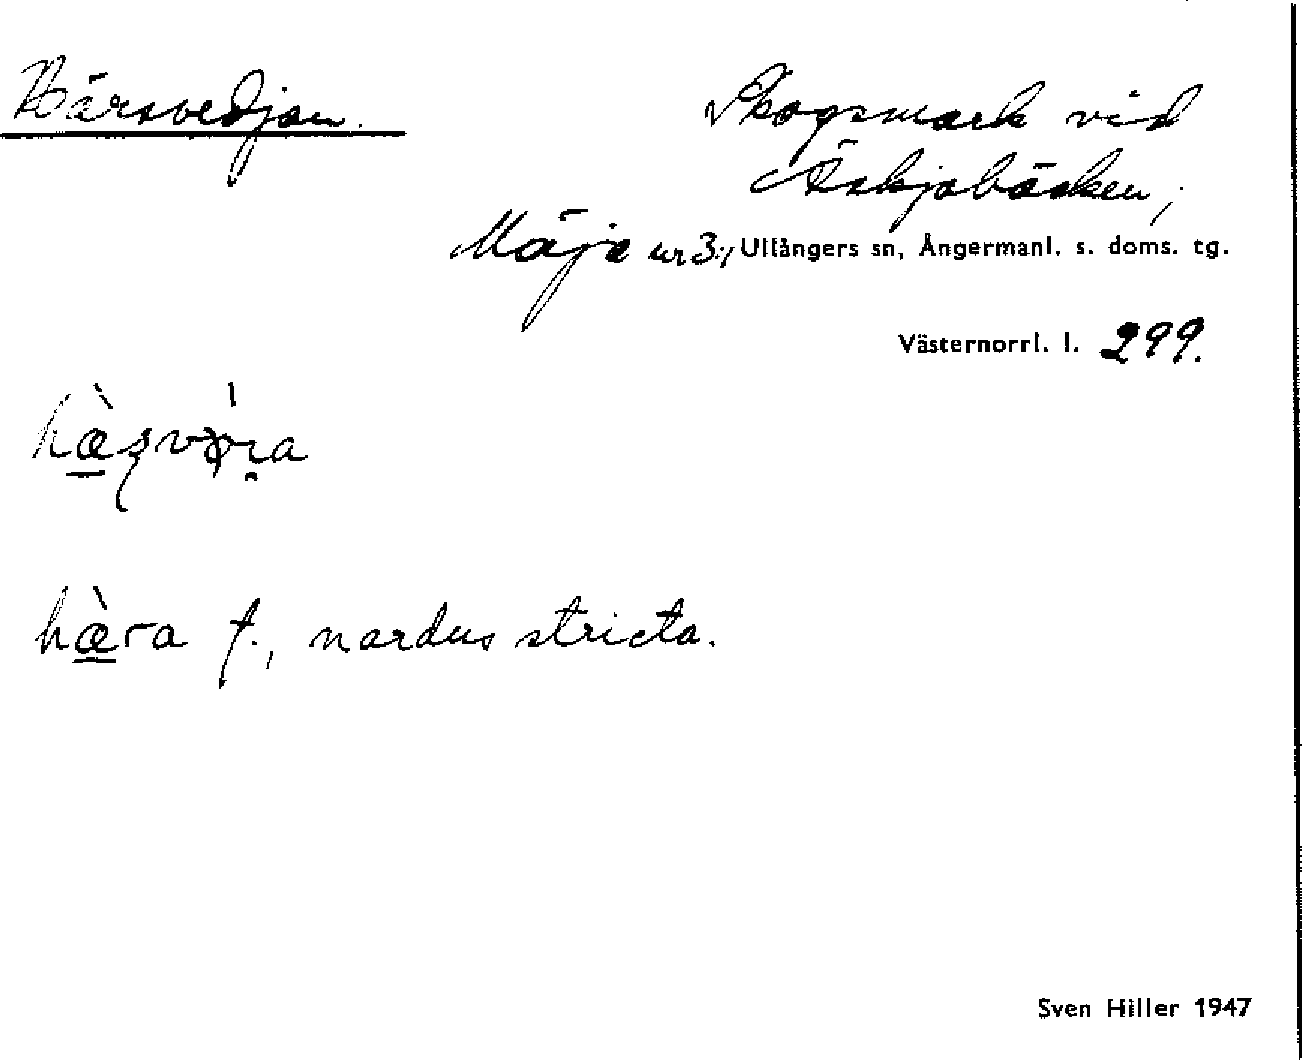 Härsvedjan.
Skogsmark vid
Äskjabäcken,
Mäja nr 3, Ullångers sn, Ångermanl. s. doms. tg.
Västernorrl. l. 299.
hæ̀ra f., nardus stricta.
Sven Hiller 1947